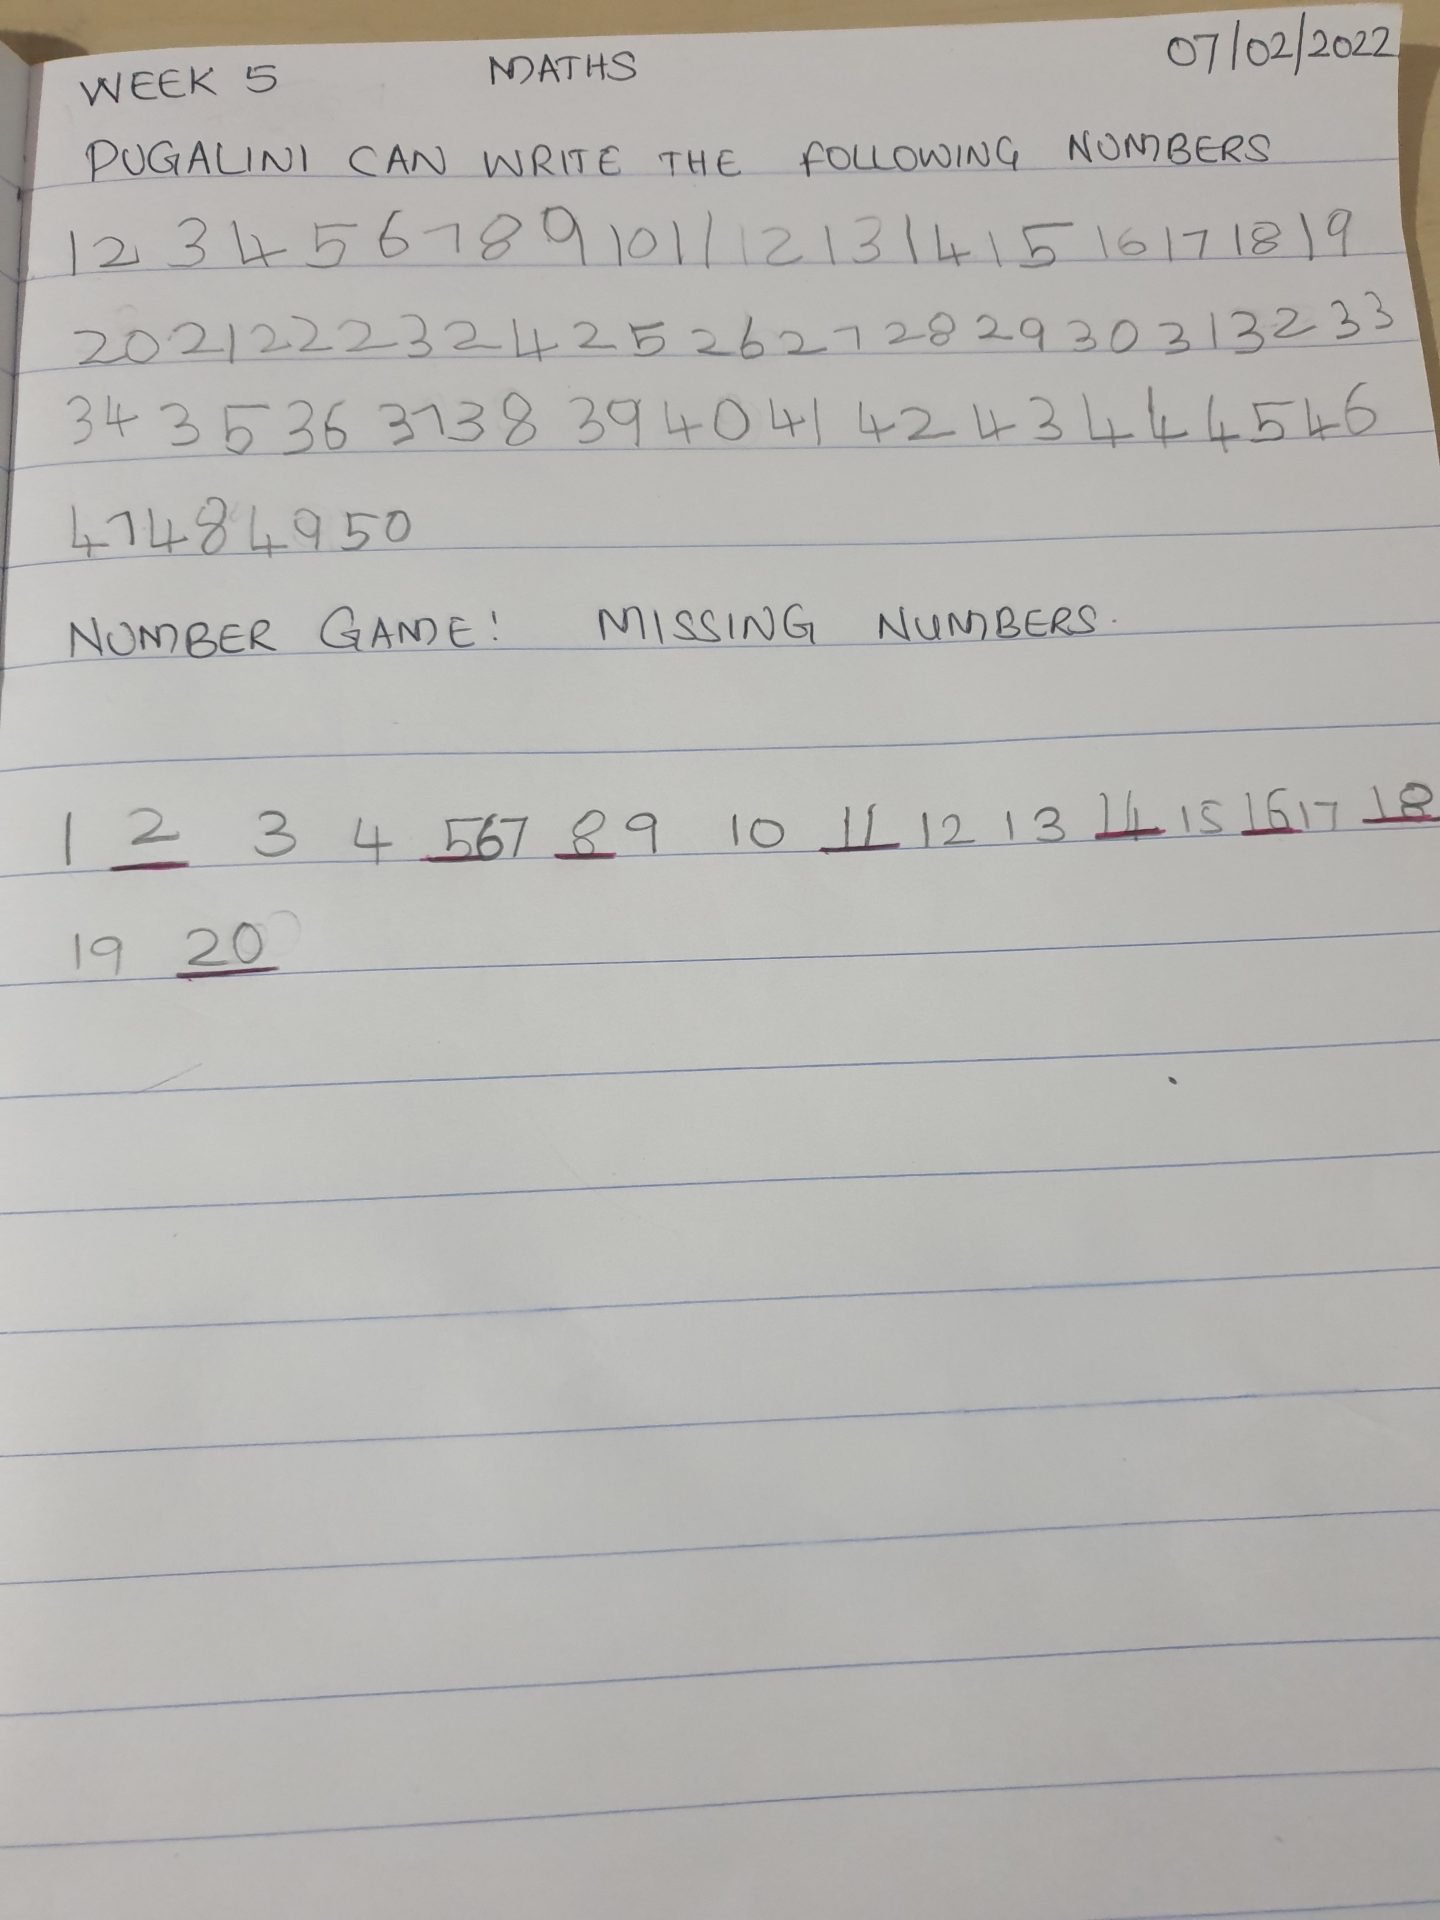 WEEK 5 MATHS 07/02/2022
PUGALINI CAN WRITE THE FOLLOWING NUMBERS
1 2 3 4 5 6 7 8 9 10 11 12 13 14 15 16 17 18 19
20 21 22 23 24 25 26 27 28 29 30 31 32 33
34 35 36 37 38 39 40 41 42 43 44 45 46
47 48 49 50
NUMBER GAME! MISSING NUMBERS.
1 2 3 4 5 6 7 8 9 10 11 12 13 14 15 16 17 18
19 20